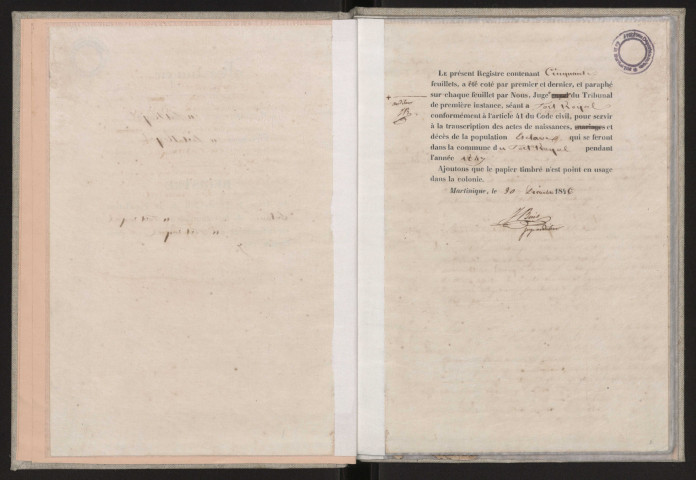 Le présent Registre contenant Cinquante
feuillets, a été coté par premier et dernier, et paraphé
sur chaque feuillet par Nous, Juge royal du Tribunal
+ auditeur
de première instance, séant a Fort Royal
conformément à l'article 41 du Code civil, pour servir
à la transcription des actes de naissances, mariages et
décès de la population Esclave qui se feront
dans la commune du Fort Royal pendant
l'année 1847
Ajoutons que le papier timbré n'est point en usage
dans la colonie.
Martinique, le 20 Décembre 1846